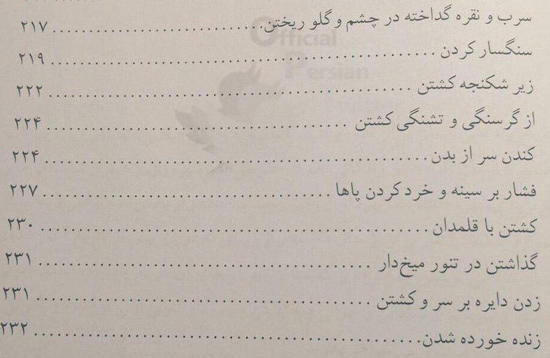 سرب و نقره گداخته در چشم و گلو ریختن ........................ ۲۱۷
سنگسار کردن ........................ ۲۱۹
زیر شکنجه کشتن ........................ ۲۲۲
از گرسنگی و تشنگی کشتن ........................ ۲۲۴
کندن سر از بدن ........................ ۲۲۴
فشار بر سینه و خرد کردن پاها ........................ ۲۲۷
کشتن با قلمدان ........................ ۲۳۰
گذاشتن در تنور میخ‌دار ........................ ۲۳۱
زدن دایره بر سر و کشتن ........................ ۲۳۱
زنده خورده شدن ........................ ۲۳۲
Official
Persian